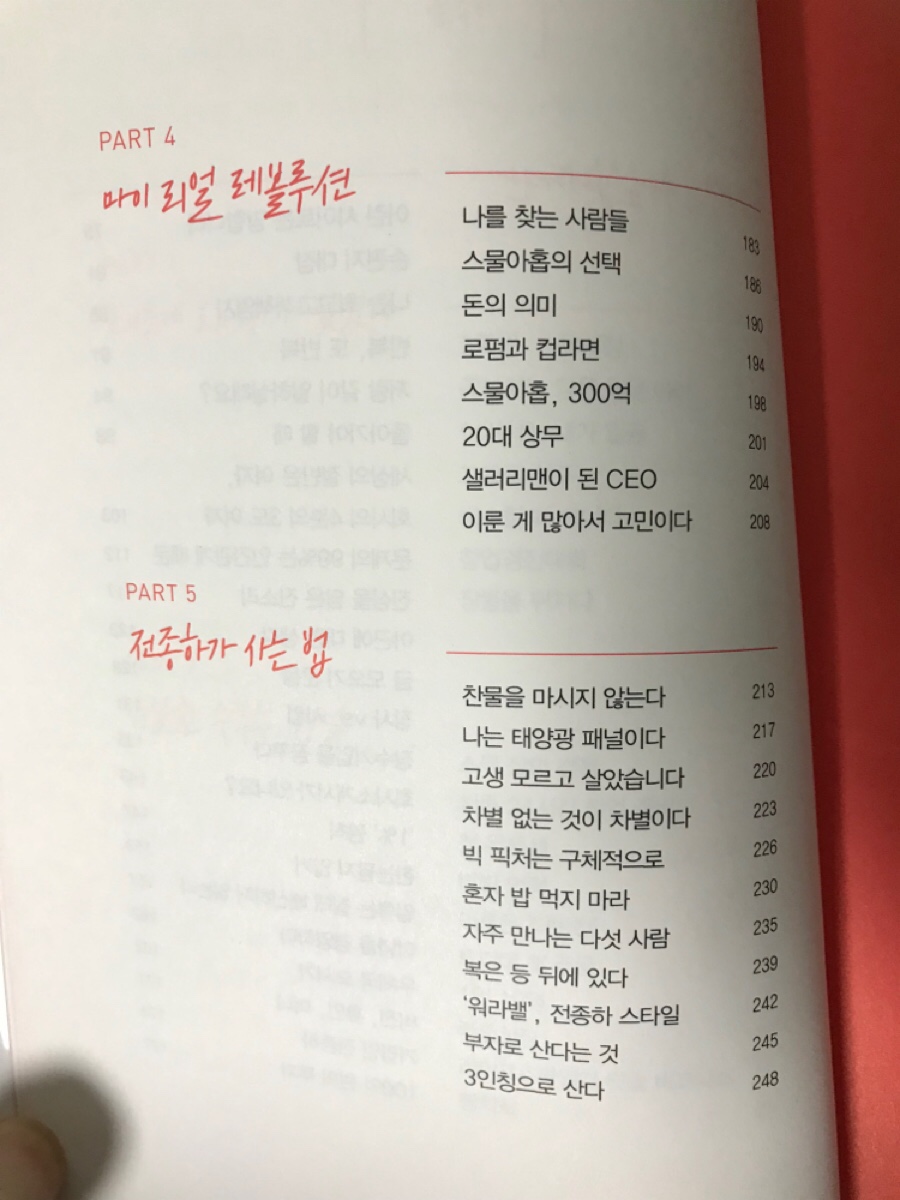 PART 4
마이 리얼 레볼루션
나를 찾는 사람들 183
스물아홉의 선택 186
돈의 의미 190
로펌과 컵라면 194
스물아홉, 300억 198
20대 상무 201
샐러리맨이 된 CEO 204
이룬 게 많아서 고민이다 208
PART 5
전종하가 사는 법
찬물을 마시지 않는다 213
나는 태양광 패널이다 217
고생 모르고 살았습니다 220
차별 없는 것이 차별이다 223
빅 픽처는 구체적으로 226
혼자 밥 먹지 마라 230
자주 만나는 다섯 사람 235
복은 등 뒤에 있다 239
‘워라밸’, 전종하 스타일 242
부자로 산다는 것 245
3인칭으로 산다 248